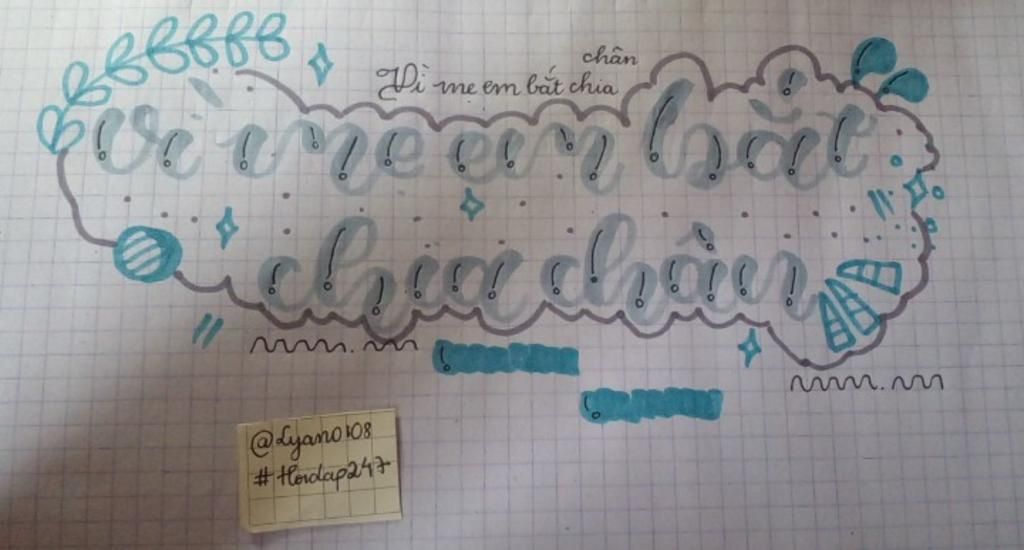 chân
Vì me em bắt chia
vì me em bắt
chia chân
@Lyan0108
#Hoidap247